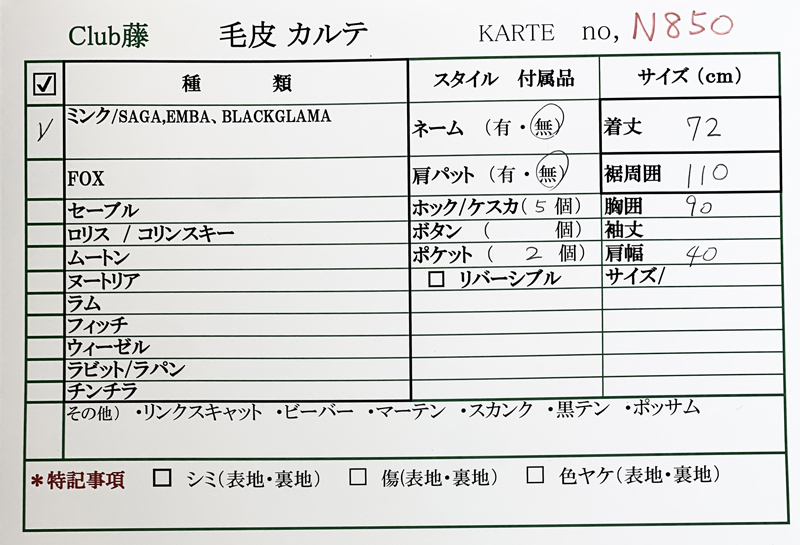 Club藤 毛皮 カルテ KARTE no, N850
☑ 種 類 スタイル 付属品 サイズ(cm)
✓ ミンク/SAGA,EMBA、BLACKGLAMA ネーム (有・無) 着丈 72
FOX 肩パット (有・無) 裾周囲 110
セーブル ホック/ケスカ(5個) 胸囲 90
ロリス / コリンスキー ボタン ( 個) 袖丈
ムートン ポケット ( 2 個) 肩幅 40
ヌートリア □ リバーシブル サイズ/
ラム
フィッチ
ウィーゼル
ラビット/ラパン
チンチラ
その他) ・リンクスキャット ・ビーバー ・マーテン ・スカンク ・黒テン ・ポッサム
*特記事項 □ シミ(表地・裏地) □ 傷(表地・裏地) □ 色ヤケ(表地・裏地)